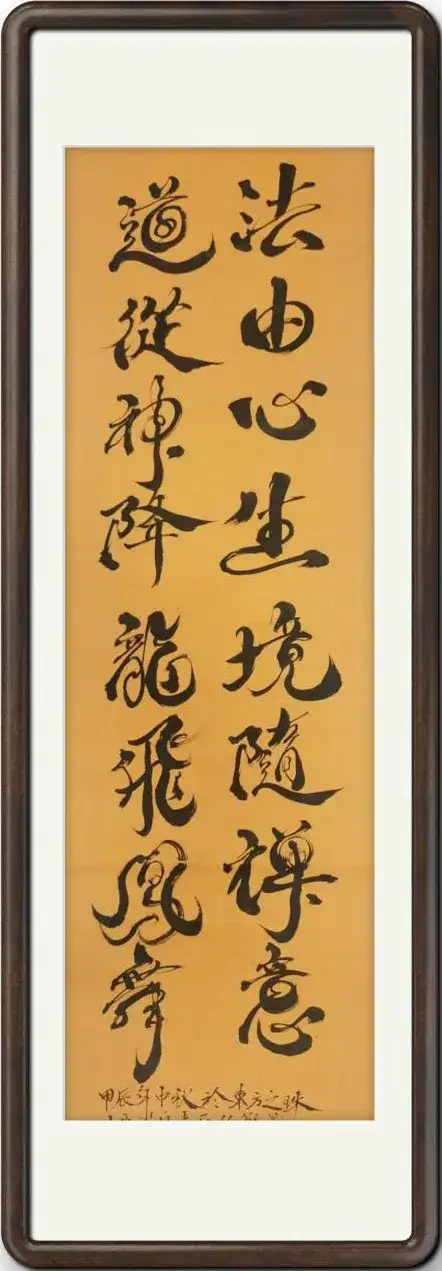 法由心生境隨禪意
道從神降龍飛鳳舞
甲辰年中秋於東方之珠